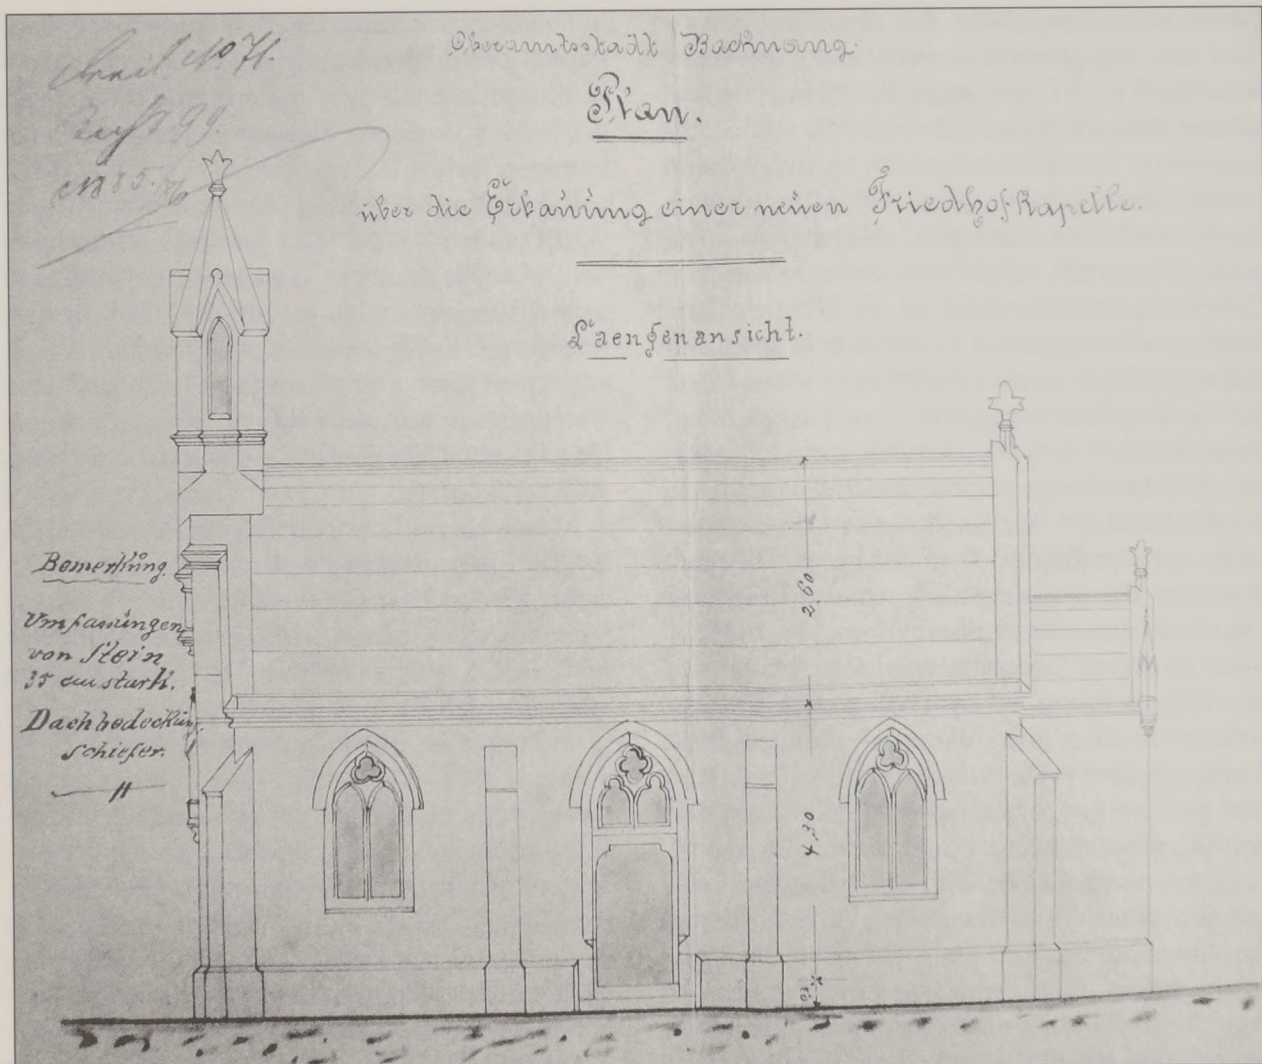 No 71.
Oberamtsstadt Backnang.
Plan.
über die Erbauung einer neuen Friedhofkapelle.
Laengenansicht.
Bemerkung.
Umfassungen
von Stein
35 cm stark.
Dachbedeckung
Schiefer.
"
2.60
4.30